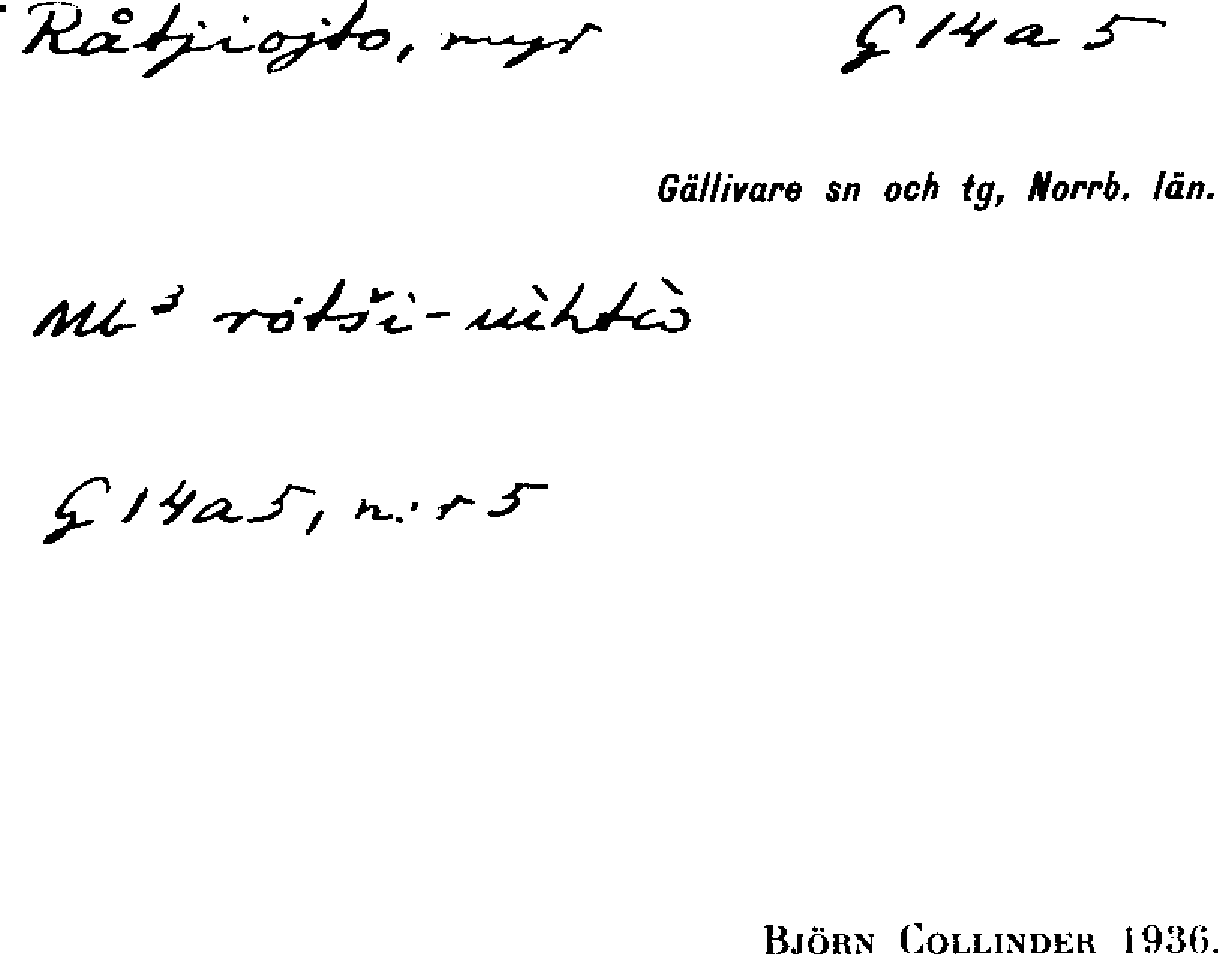 Råtjiojto, myr G 14 a 5
Gällivare sn och tg, Norrb. län.
Mb³ rötši-
G 14a5, n:r 5
BJÖRN COLLINDER 1936.